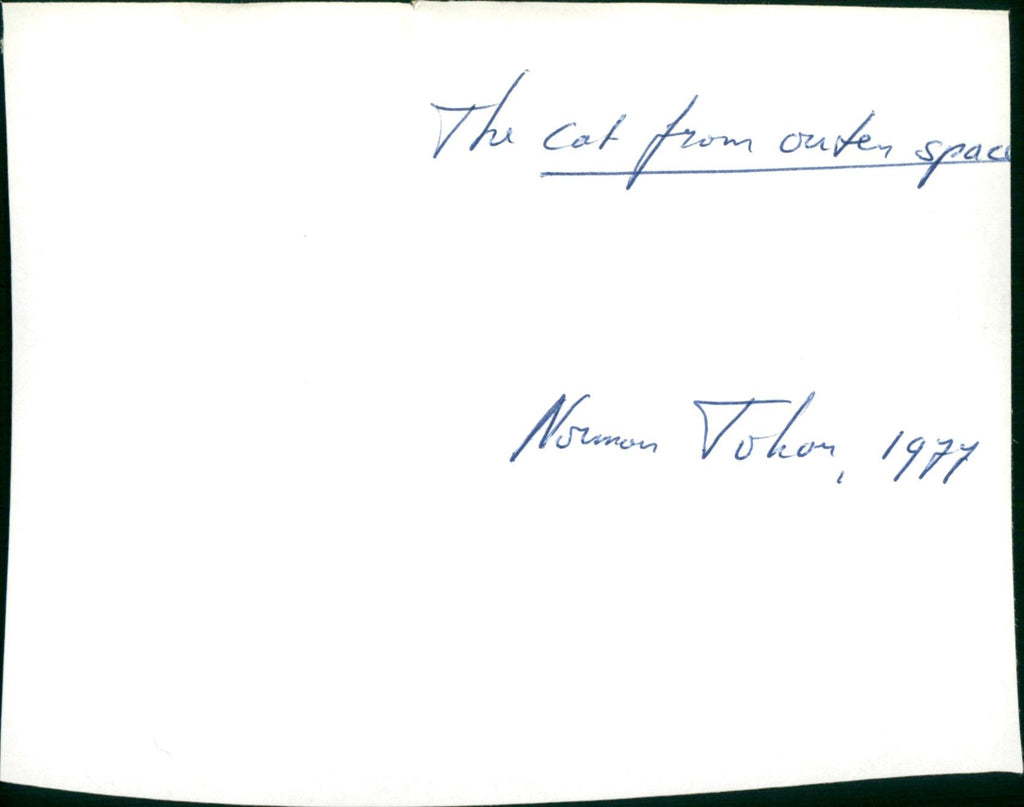 The cat from outer space
Norman Tokar, 1977